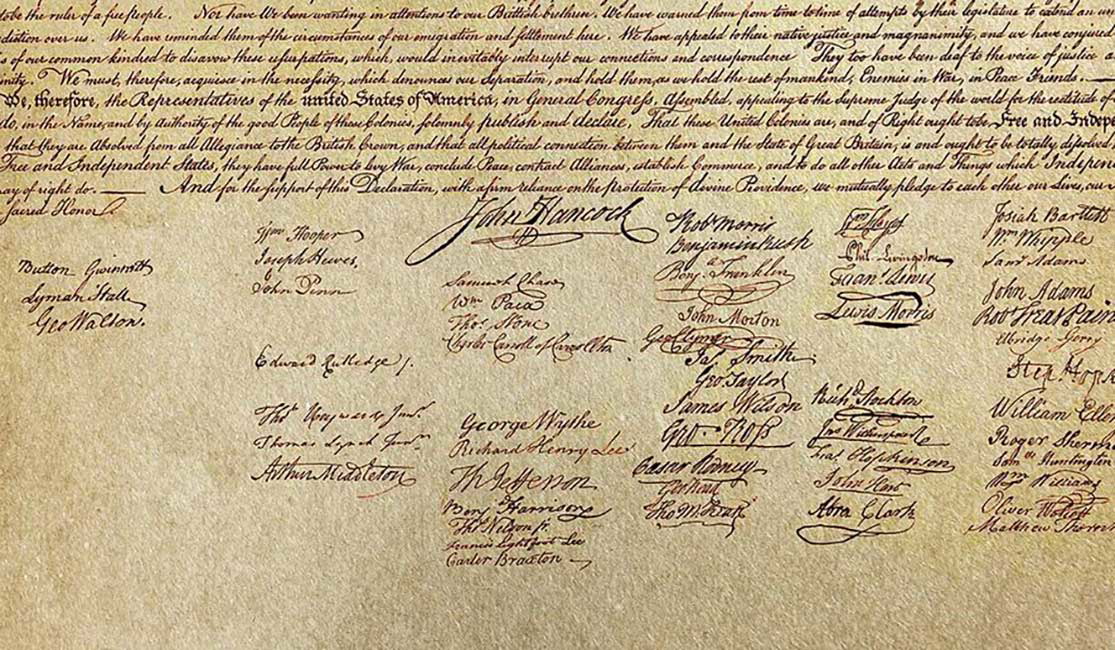 to be the ruler of a free people. Nor have We been wanting in attentions to our Brittish brethren. We have warned them from time to time of attempts by their legislature to extend an
diction over us. We have reminded them of the circumstances of our emigration and settlement here. We have appealed to their native justice and magnanimity, and we have conjured
s of our common kindred to disavow these usurpations, which, would inevitably interrupt our connections and correspondence They too have been deaf to the voice of justice
inity. We must, therefore, acquiesce in the necessity, which denounces our Separation, and hold them, as we hold the rest of mankind, Enemies in War, in Peace Friends.
We, therefore, the Representatives of the united States of America, in General Congress, Assembled, appealing to the Supreme Judge of the world for the rectitude of
do, in the Name, and by Authority of the good People of these Colonies, solemnly publish and declare, That these United Colonies are, and of Right ought to be Free and Indepe
that they are Absolved from all Allegiance to the British Crown, and that all political connection between them and the State of Great Britain, is and ought to be totally dissolved
Free and Independent States, they have full Power to levy War, conclude Peace, contract Alliances, establish Commerce, and to do all other Acts and Things which Indepen
ay of right do. — And for the support of this Declaration, with a firm reliance on the protection of divine Providence, we mutually pledge to each other our Lives, our
sacred Honor.
Button Gwinnett
Lyman Hall
Geo Walton.
Wm Hooper
Joseph Hewes,
John Penn
Edward Rutledge
Thos Heyward Junr
Thomas Lynch Junr
Arthur Middleton
John Hancock
Samuel Chase
Wm Paca
Thos Stone
Charles Carroll of Carrollton
George Wythe
Richard Henry Lee
Th Jefferson
Benj Harrison
Thos Nelson jr.
Francis Lightfoot Lee
Carter Braxton
Robt Morris
Benjamin Rush
Benja Franklin
John Morton
Geo Clymer
Jas Smith
Geo Taylor
James Wilson
Geo. Ross
Caesar Rodney
Geo Read
Tho M:Kean
Wm Floyd
Phil. Livingston
Frans Lewis
Lewis Morris
Richd Stockton
Jno Witherspoon
Fras Hopkinson
John Hart
Abra Clark
Josiah Bartlett
Wm Whipple
Saml Adams
John Adams
Robt Treat Pain
Elbridge Gerry
Step. Hopk
William Eller
Roger Sherma
Samel Huntington
Wm Williams
Oliver Wolcott
Matthew Thorn